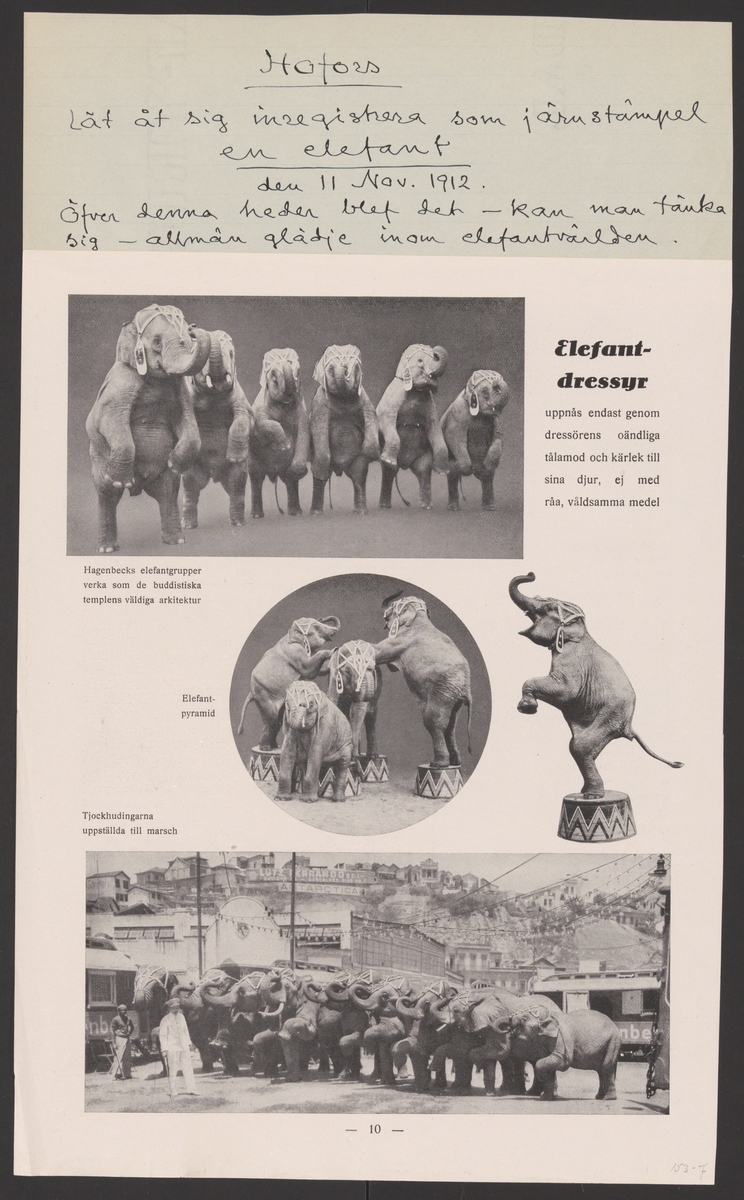 Hofors
Lät åt sig inregistrera som järnstämpel
en elefant
den 11 Nov. 1912.
Öfver denna heder blef det – kan man tänka
sig – allmän glädje inom elefantvärlden.
Elefant-
dressyr
uppnås endast genom
dressörens oändliga
tålamod och kärlek till
sina djur, ej med
råa, våldsamma medel
Hagenbecks elefantgrupper
verka som de buddistiska
templens väldiga arkitektur
Elefant-
pyramid
Tjockhudingarna
uppställda till marsch
ANTARCTICA
nbe
nbe
— 10 —
153-7